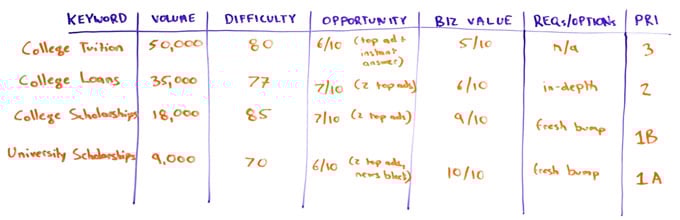 KEYWORD VOLUME DIFFICULTY OPPORTUNITY BIZ VALUE REQS/OPTIONS PRI
College Tuition 50,000 80 6/10 (top ad + instant answer) 5/10 n/a 3
College Loans 35,000 77 7/10 (2 top ads) 6/10 in-depth 2
College Scholarships 18,000 85 7/10 (2 top ads) 9/10 fresh bump 1B
University Scholarships 9,000 70 6/10 (2 top ads, news block) 10/10 fresh bump 1A